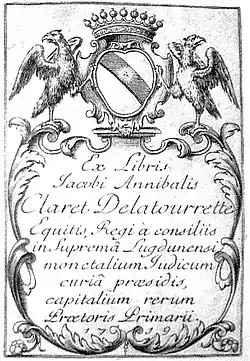 Ex Libris
Jacobi Annibalis
Claret Delatourrette
Equitis, Regi à consiliis
in Supremâ Lugdunensi
monetalium Judicum
curiâ præsidis,
capitalium rerum
Prætoris Primarii
1719